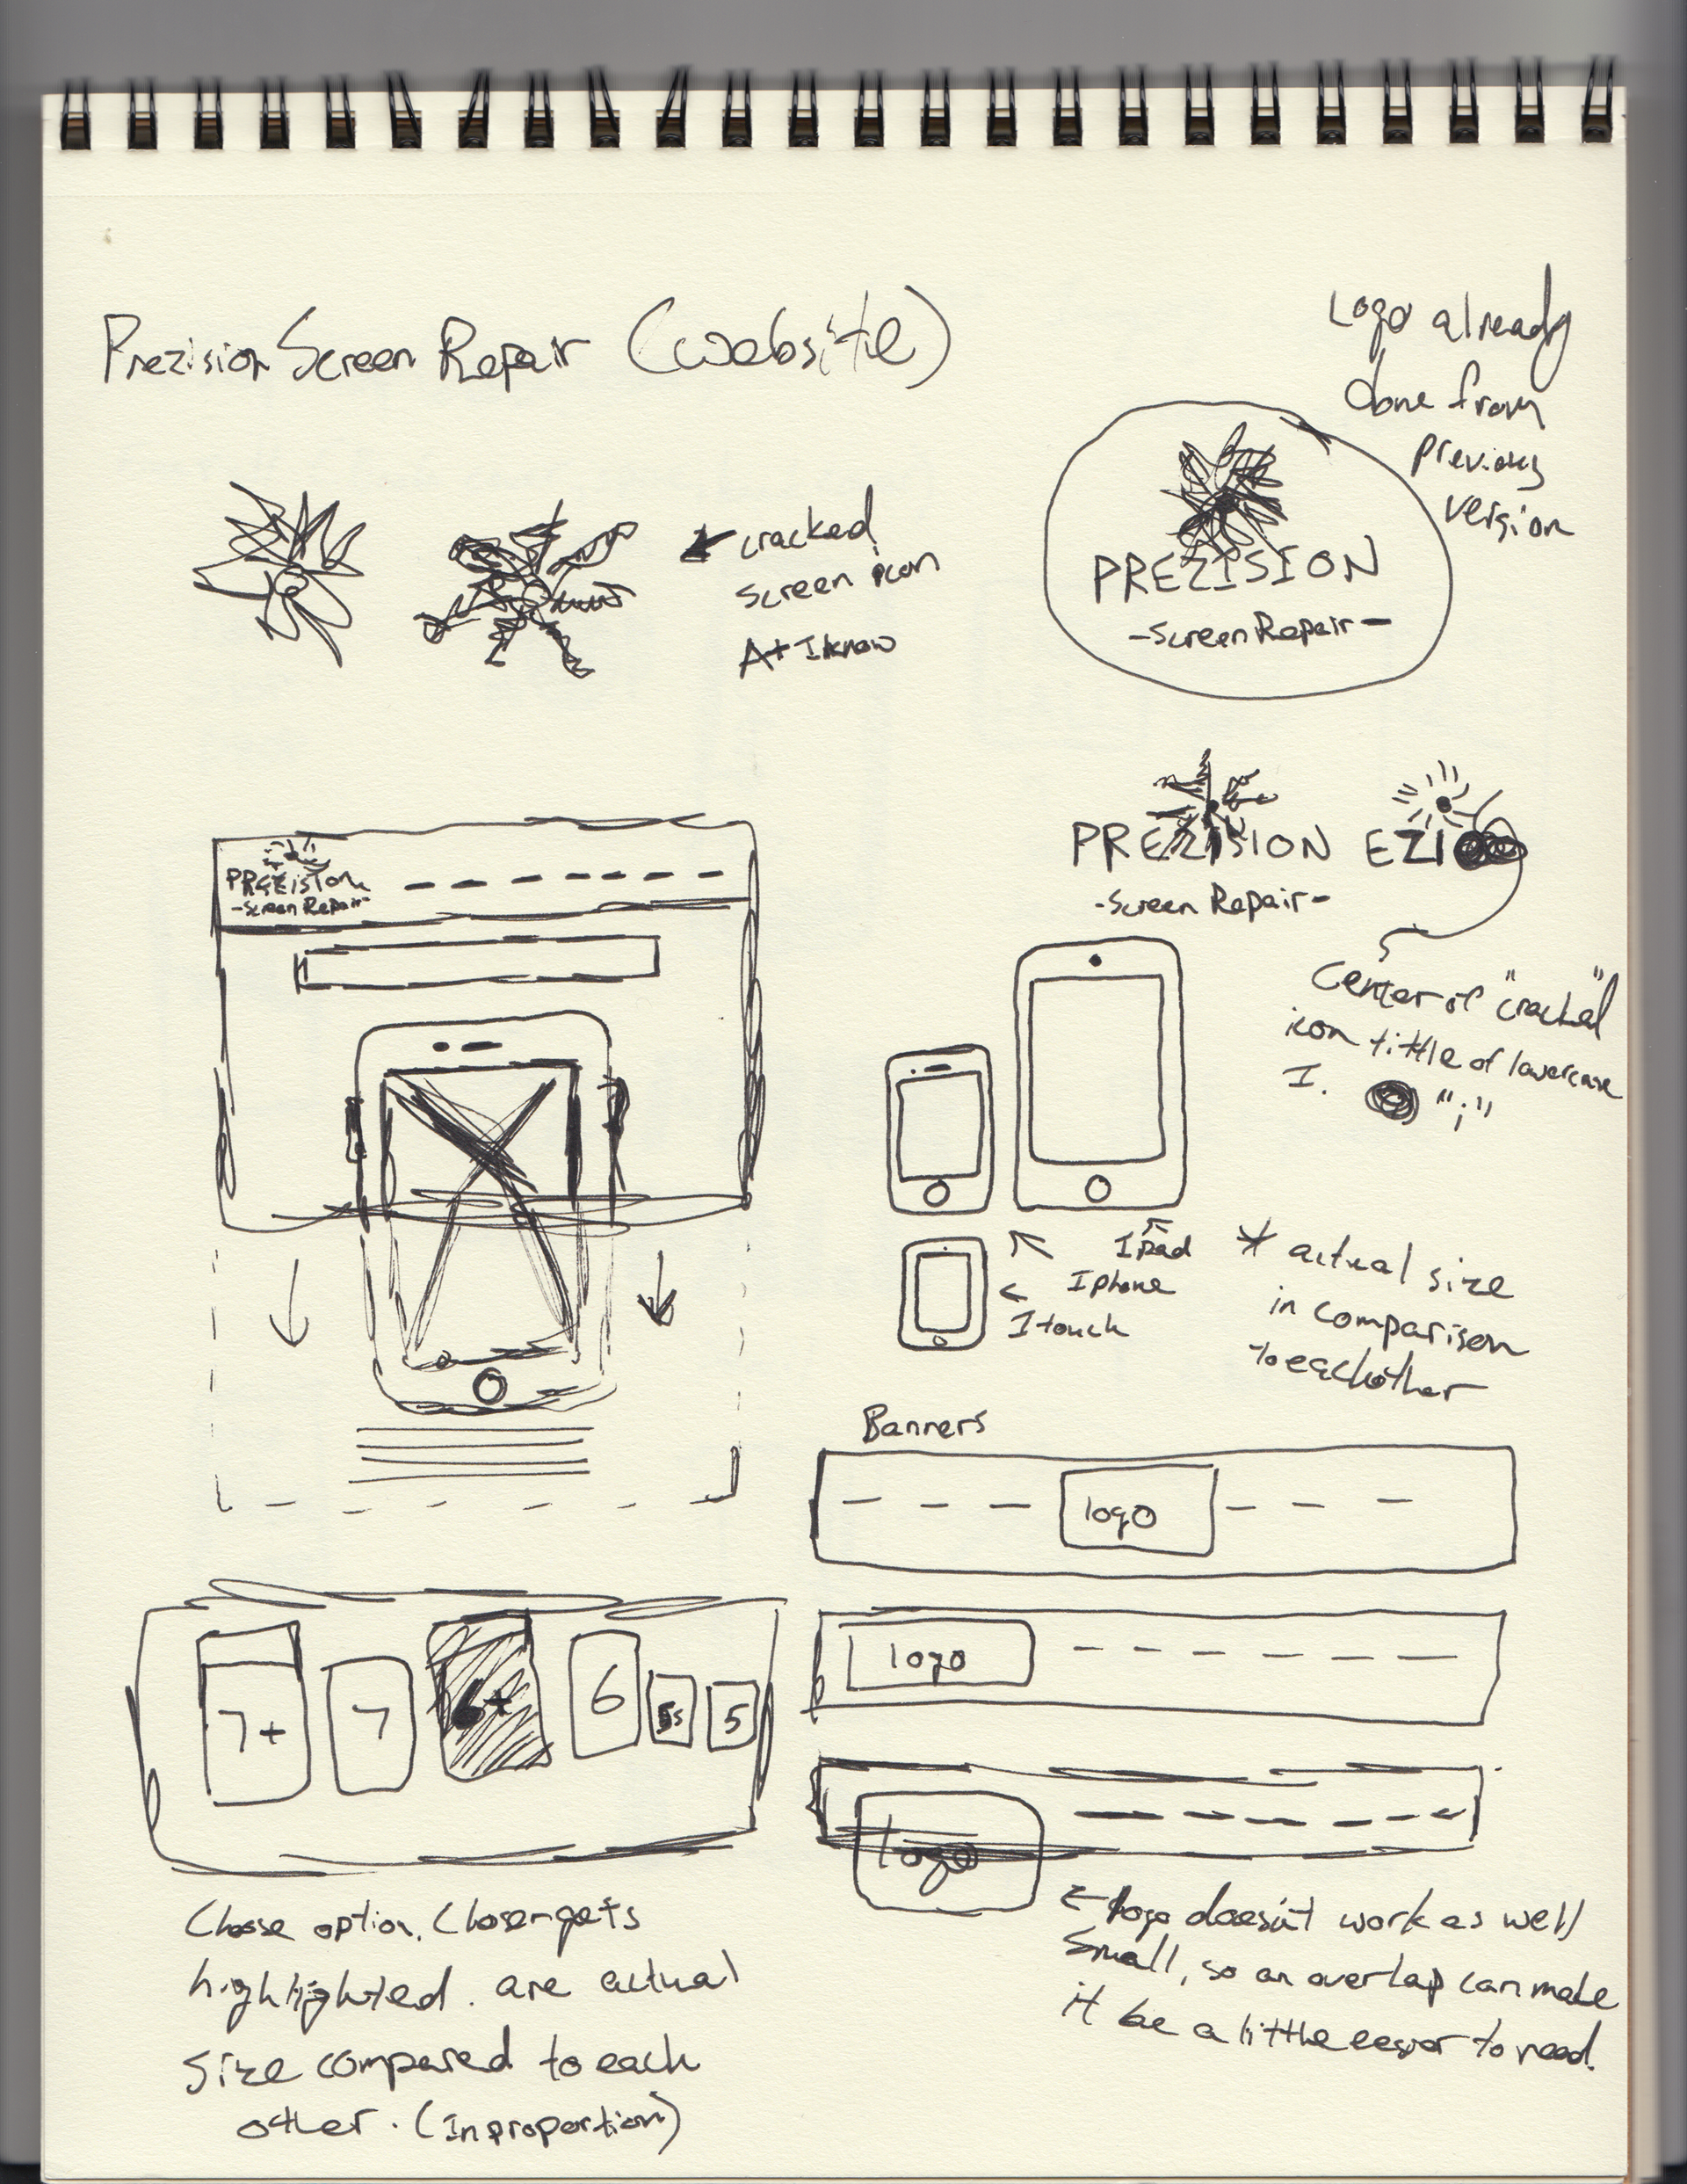 Prezision Screen Repair (website)
Logo already
done from
previous
version
cracked
screen icon
A+ I know
PREZISION
-Screen Repair-
PREZISION
-Screen Repair-
EZI
Center of "cracked"
icon tittle of lowercase
I. "i"
PREZISION
-Screen Repair-
Ipad
Iphone
Itouch
* actual size
in comparison
to eachother
Banners
logo
logo
logo
7+
7
6+
6
5s
5
Choose option. Chosen gets
highlighted. are actual
size compared to each
other. (In proportion)
Logo doesn't work as well
small, so an overlap can make
it be a little easier to read.